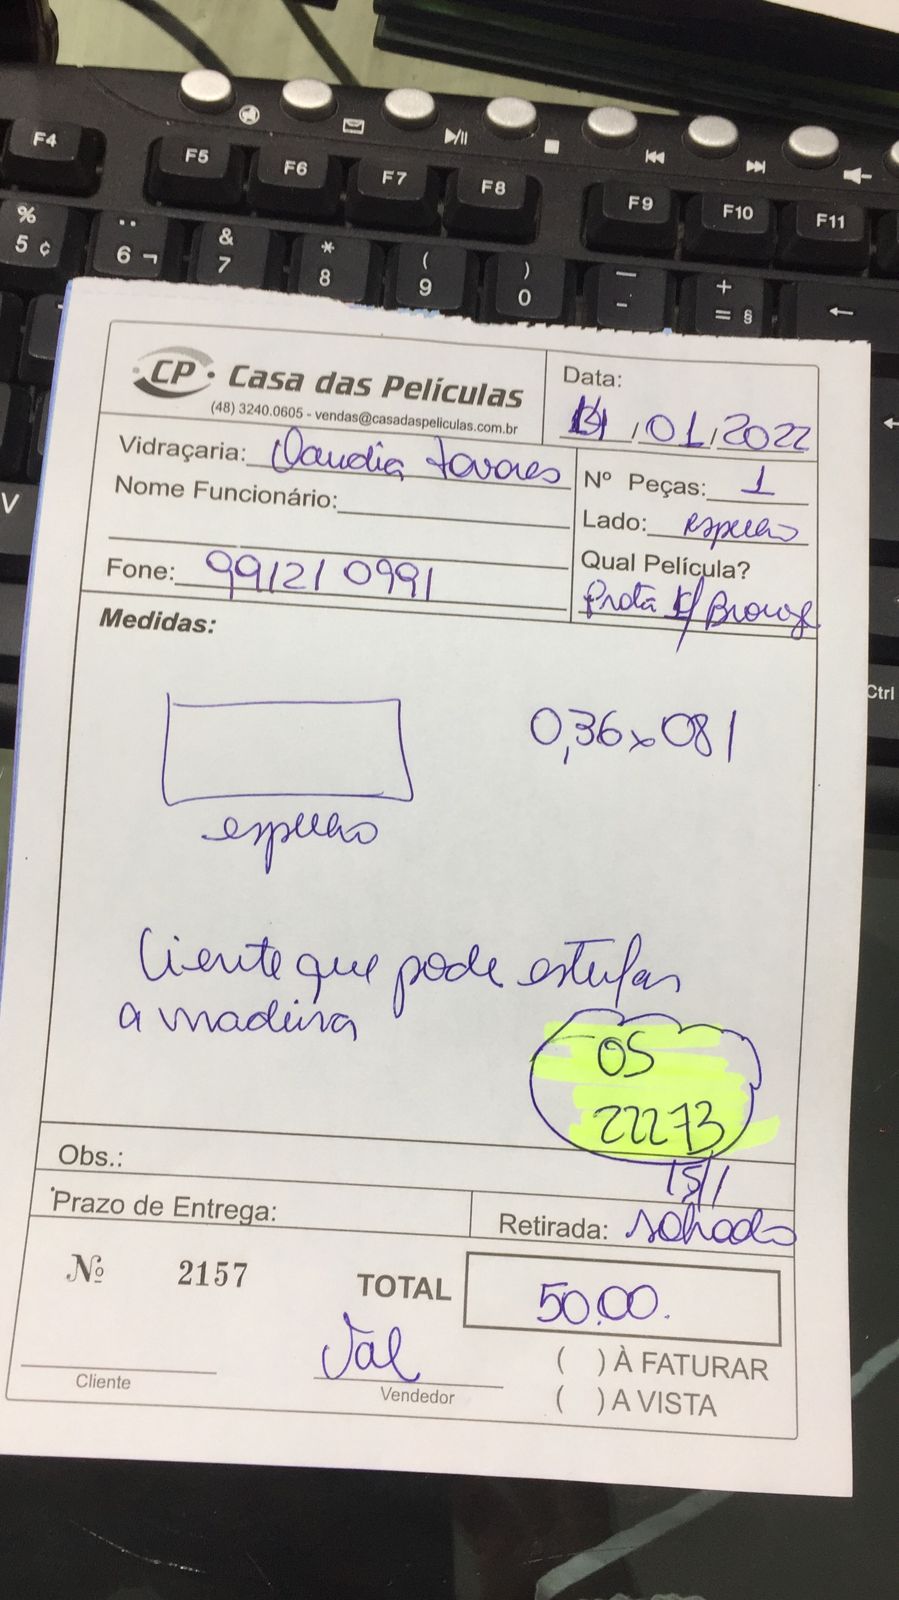 F4
F5
F6
F7
F8
F9
F10
F11
%
5 ¢
6 ¬
&
7
*
8
(
9
)
0
—
-
+
= §
V
Ctrl
CP
Casa das Películas
(48) 3240.0605 - vendas@casadaspeliculas.com.br
Data:
/01/2022
Vidraçaria: Claudia Tavares
Nº Peças: 1
Nome Funcionário:
Lado: espelho
Fone: 99121 0991
Qual Película?
Prata p/ Bronze
Medidas:
0,36 x 081
espelho
Ciente que pode estufar
a madeira
OS
22273
Obs.:
15/1
Prazo de Entrega:
Retirada: sábado
Nº 2157
TOTAL 50,00.
Val
( ) À FATURAR
Cliente
Vendedor
( ) A VISTA